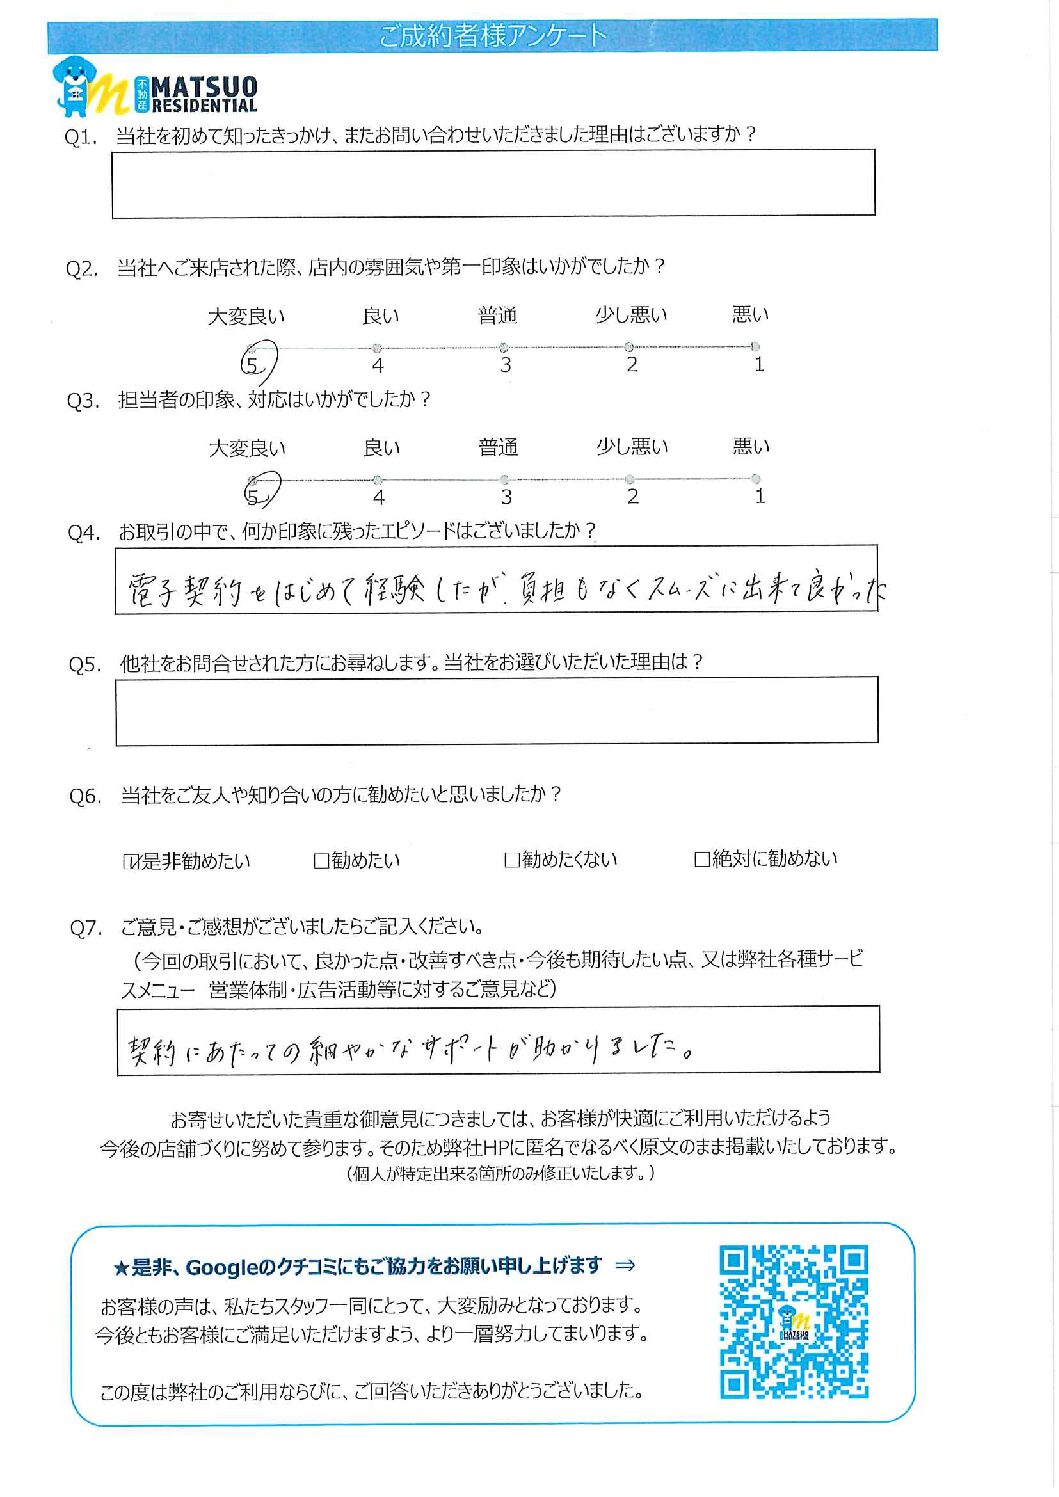 ご成約者様アンケート
不動産 MATSUO
RESIDENTIAL
Q1. 当社を初めて知ったきっかけ、またお問い合わせいただきました理由はございますか？
Q2. 当社へご来店された際、店内の雰囲気や第一印象はいかがでしたか？
大変良い 良い 普通 少し悪い 悪い
5 4 3 2 1
Q3. 担当者の印象、対応はいかがでしたか？
大変良い 良い 普通 少し悪い 悪い
5 4 3 2 1
Q4. お取引の中で、何か印象に残ったエピソードはございましたか？
電子契約をはじめて経験したが、負担もなくスムーズに出来て良かった
Q5. 他社をお問合せされた方にお尋ねします。当社をお選びいただいた理由は？
Q6. 当社をご友人や知り合いの方に勧めたいと思いましたか？
☑是非勧めたい □勧めたい □勧めたくない □絶対に勧めない
Q7. ご意見・ご感想がございましたらご記入ください。
（今回の取引において、良かった点・改善すべき点・今後も期待したい点、又は弊社各種サービ
スメニュー 営業体制・広告活動等に対するご意見など）
契約にあたっての細やかなサポートが助かりました。
お寄せいただいた貴重な御意見につきましては、お客様が快適にご利用いただけるよう
今後の店舗づくりに努めて参ります。そのため弊社HPに匿名でなるべく原文のまま掲載いたしております。
（個人が特定出来る箇所のみ修正いたします。）
★是非、Googleのクチコミにもご協力をお願い申し上げます ⇒
お客様の声は、私たちスタッフ一同にとって、大変励みとなっております。
今後ともお客様にご満足いただけますよう、より一層努力してまいります。
この度は弊社のご利用ならびに、ご回答いただきありがとうございました。